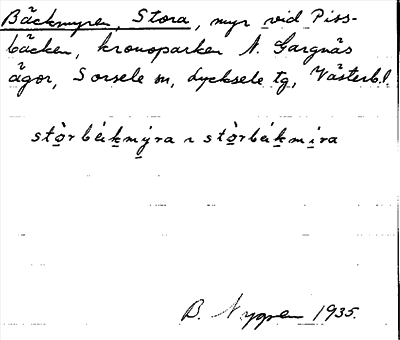 Bäckmyren, Stora, myr vid Piss-
bäcken, kronoparken N. Gargnäs
ägor, Sorsele sn, Lycksele tg, Västerb.l.
stòrbäkmýra ı stòrbäkmira
B. Nygren 1935.